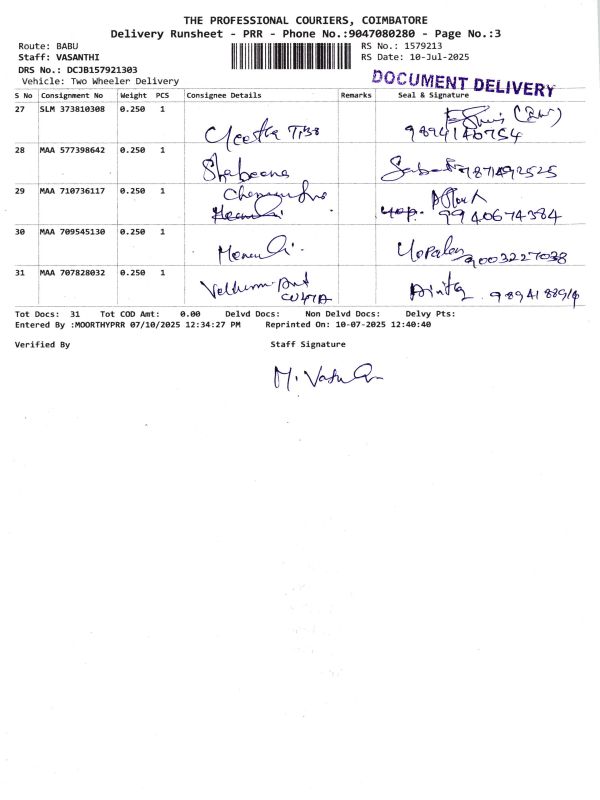 THE PROFESSIONAL COURIERS, COIMBATORE
Delivery Runsheet - PRR - Phone No.:9047080280 - Page No.:3
Route: BABU
RS No.: 1579213
Staff: VASANTHI
RS Date: 10-Jul-2025
DRS No.: DCJB157921303
Vehicle: Two Wheeler Delivery
DOCUMENT DELIVERY
S No Consignment No Weight PCS Consignee Details Remarks Seal & Signature
27 SLM 373810308 0.250 1 Geetha
9894140754
28 MAA 577398642 0.250 1 Shabeena
9871492525
29 MAA 710736117 0.250 1
9940674384
30 MAA 709545130 0.250 1
9003227038
31 MAA 707828032 0.250 1
Tot Docs: 31 Tot COD Amt: 0.00 Delvd Docs: Non Delvd Docs: Delvy Pts:
Entered By :MOORTHYPRR 07/10/2025 12:34:27 PM Reprinted On: 10-07-2025 12:40:40
Verified By Staff Signature
M. Vasan